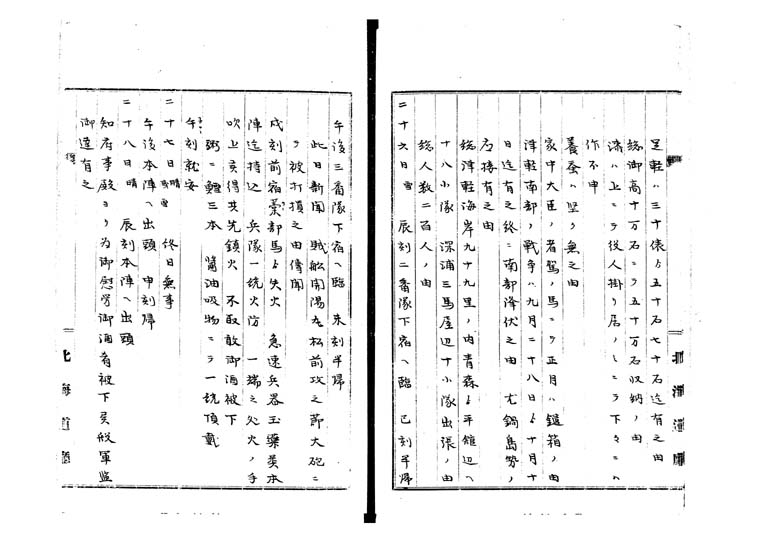 足軽ハ三十俵ゟ五十石七十石迄有之由
総御高十万石ニ而五十万石収納ノ由
済ノ上ニ而役人掛り居ノ
作不申
養蚕ハ堅ク無之由
家中大臣ノ者駕ノ馬ニ而正月ハ鎧箱ノ由
津軽南部ノ戦争ハ九月二十八日ゟ十月十
日迄有之終ニ南部降伏之由 尤鍋島勢ノ
応援有之由
総津軽海岸九十九里ノ内青森ゟ平舘辺ヘ
十八小隊 深浦三馬屋辺十小隊出張ノ由
総人数二百人ノ由
二十六日 雪 辰刻二番隊下宿ヘ臨 巳刻半帰
午後三番隊下宿ヘ臨 未刻半帰
此日新聞 賊船開陽丸松前攻之節大砲ニ
而被打損之由傳聞
戌刻前宿 部馬ゟ失火 急速兵器玉薬等本
陣迄持込 兵隊一統火防 一端之処火ノ手
吹上 得共先鎮火 不取敢御酒被下
粥ニ鱈三本 醤油吸物ニ而一統頂戴
午刻就安
二十七日 晴 雪 終日無事
午後本陣ヘ出頭 申刻帰
二十八日 晴 辰刻本陣ヘ出頭
知府事殿ヨリ為御慰労御酒肴被下候段軍監
御達有之
北海道